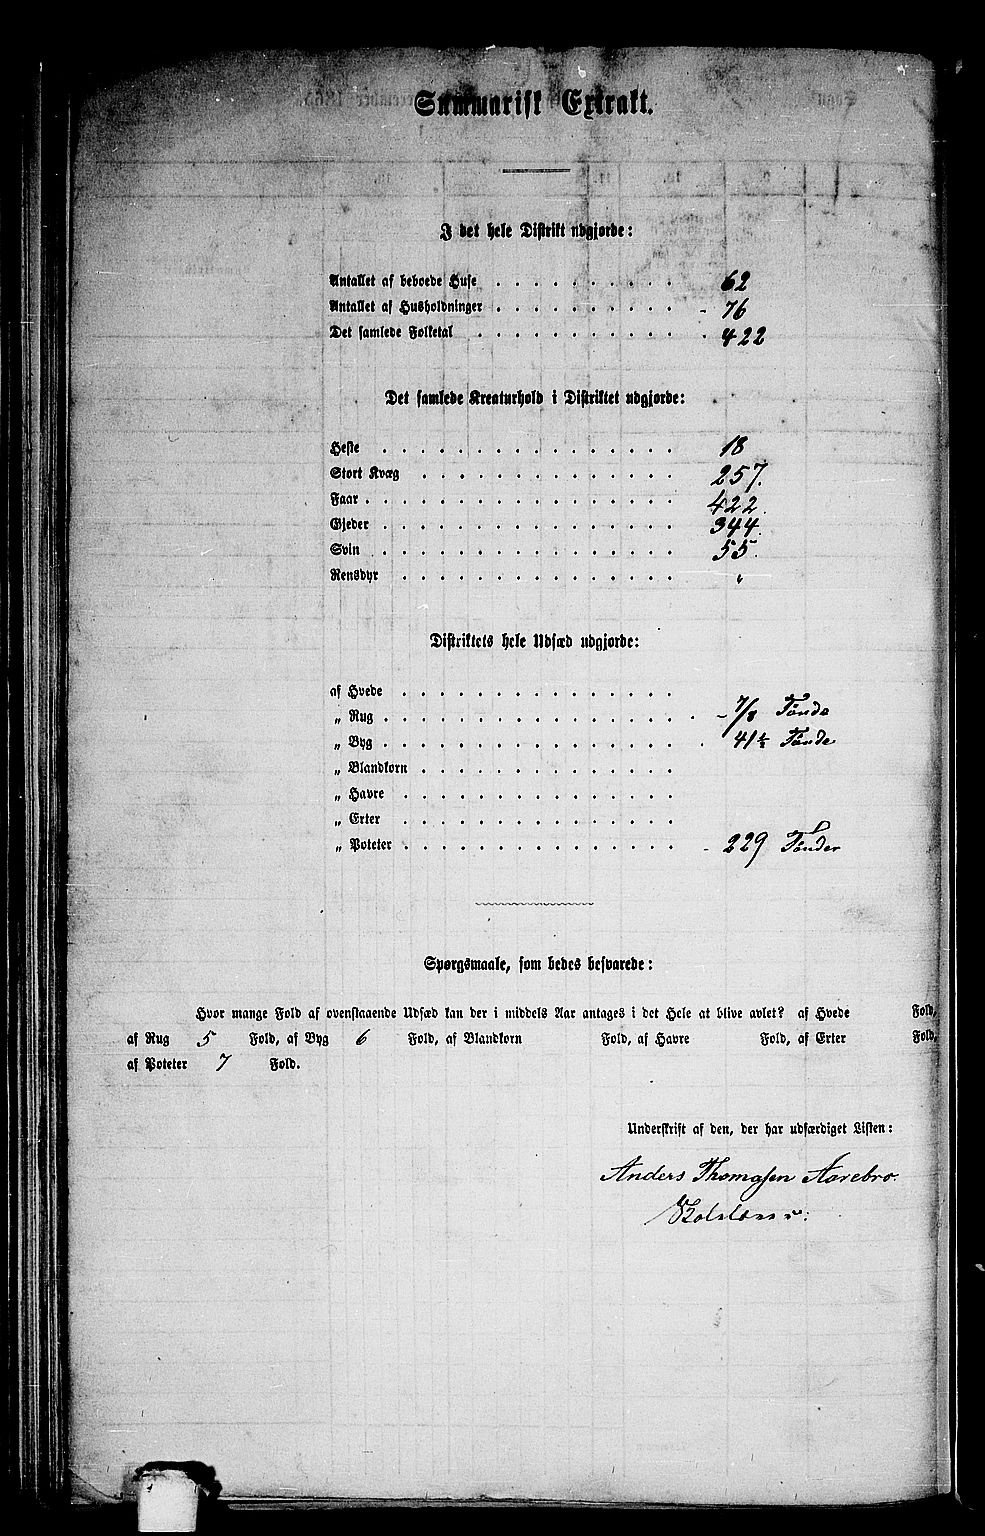 Summarisk Extrakt.
I det hele Distrikt udgjorde:
Antallet af beboede Huse . . . . . . . . . . 62
Antallet af Husholdninger . . . . . . . . . . - 76
Det samlede Folketal . . . . . . . . . . . . 422
Det samlede Kreaturhold i Distriktet udgjorde:
Heste . . . . . . . . . . . . . . . . 18
Stort Kvæg . . . . . . . . . . . . . . 257.
Faar . . . . . . . . . . . . . . . . . 422.
Gjeder . . . . . . . . . . . . . . . . 344.
Svin . . . . . . . . . . . . . . . . 55.
Rensdyr . . . . . . . . . . . . . . . "
Distriktets hele Udsæd udgjorde:
af Hvede . . . . . . . . . . . . . . .
„ Rug . . . . . . . . . . . . . . . . . - 7/8 Tønde
„ Byg . . . . . . . . . . . . . . . . . 41½ Tønde
„ Blandkorn . . . . . . . . . . . . . .
„ Havre . . . . . . . . . . . . . . .
„ Erter . . . . . . . . . . . . . . .
„ Poteter . . . . . . . . . . . . . . . - 229 Tønder
Spørgsmaale, som bedes besvarede:
Hvor mange Fold af ovenstaaende Udsæd kan der i middels Aar antages i det Hele at blive avlet? af Hvede Fold,
af Rug 5 Fold, af Byg 6 Fold, af Blandkorn Fold, af Havre Fold, af Erter Fold,
af Poteter 7 Fold.
Underskrift af den, der har udfærdiget Listen:
Anders Thomassen Aarebro.